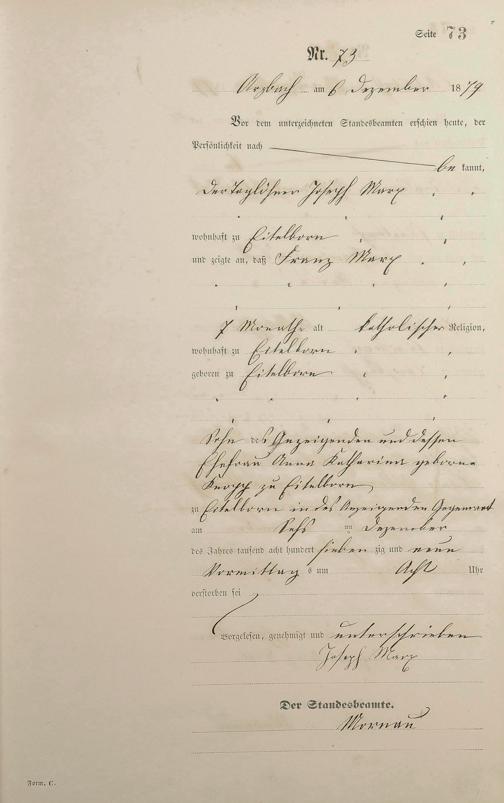 Seite 73
Nr. 73
Arzbach am 6 Dezember 1879
Vor dem unterzeichneten Standesbeamten erschien heute, der
Persönlichkeit nach
be kannt,
der Taglöhner Joseph Marx
wohnhaft zu Eitelborn
und zeigte an, daß Franz Marx
7 Monathe alt katholischer Religion,
wohnhaft zu Eitelborn
geboren zu Eitelborn
Sohn des Anzeigenden und dessen
Ehefrau Anna Katharina geborne
Knopp zu Eitelborn
zu Eitelborn in des Anzeigenden Gegenwart
am Sechs ten Dezember
des Jahres tausend acht hundert sieben zig und neun
Vormittag s um Acht Uhr
verstorben sei
Vorgelesen, genehmigt und unterschrieben
Joseph Marx
Der Standesbeamte.
Mornau
Form. C.